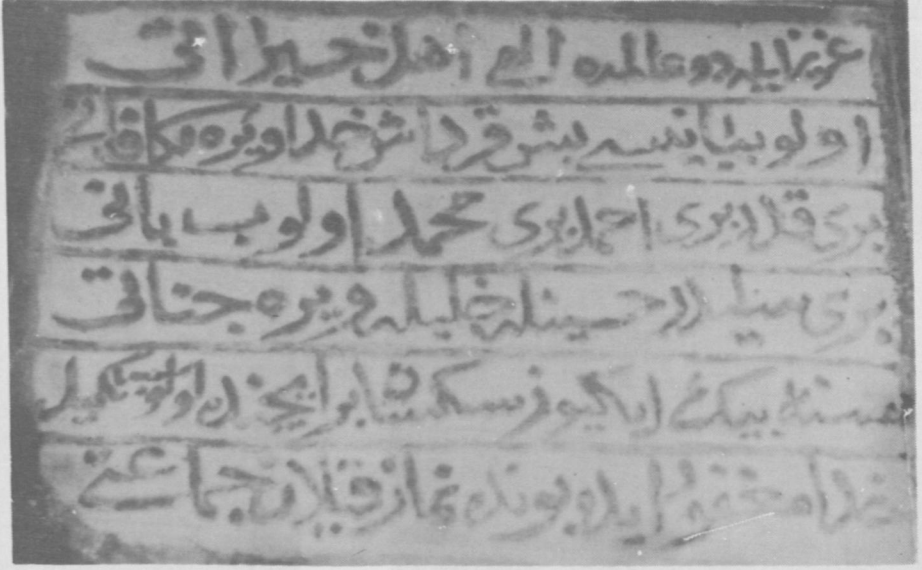 عزيز ايله دو عالمده الهى اهل خيراتى
اولوب بش قرداش خدا ويره مكافاتى
برى برى احمد برى محمد اولوب بانى
برى حسينله خليله ويره جناتى
سنه بيك ايكيوز سكسن ايچنده اولوب تكميل
خدا مغفور ايده بونده نماز قيلان جماعتى